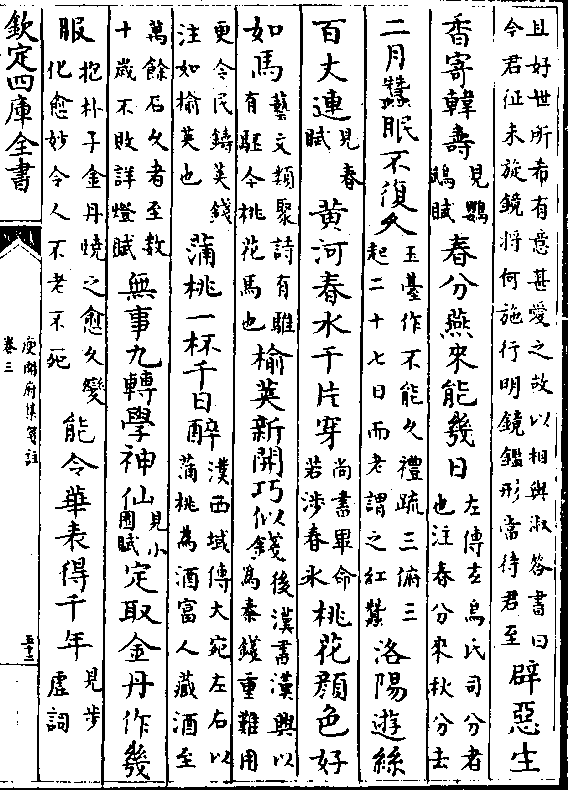 且好世所希有意甚愛之故以相與淑答書曰
今君征未旋鏡將何施行明鏡鑑形當待君至
辟惡生
香寄韓壽
見鸚
鵡賦
春分燕來能幾日
左傳玄鳥氏司分者
也注春分來秋分去
二月蠶眠不復久
玉臺作不能久禮疏三俯三
起二十七日而老謂之紅蠶
洛陽遊絲
百丈連
見春
賦
黄河春水千片穿
尚書畢命
若涉春氷
桃花顔色好
如馬
藝文類聚詩有騅
有駓今桃花馬也
榆莢新開巧似錢
後漢書漢興以
為秦錢重難用
更令民鑄莢錢
注如榆莢也
蒲桃一杯千日醉
漢西域傳大宛左右以
蒲桃為酒富人藏酒至
萬餘石久者至數
十歲不敗詳燈賦
無事九轉學神仙
見小
園賦
定取金丹作幾
服
抱朴子金丹燒之愈久變
化愈妙令人不老不死
能令華表得千年
見步
虚詞
欽定四庫全書
庾開府集箋註
卷三
五十三